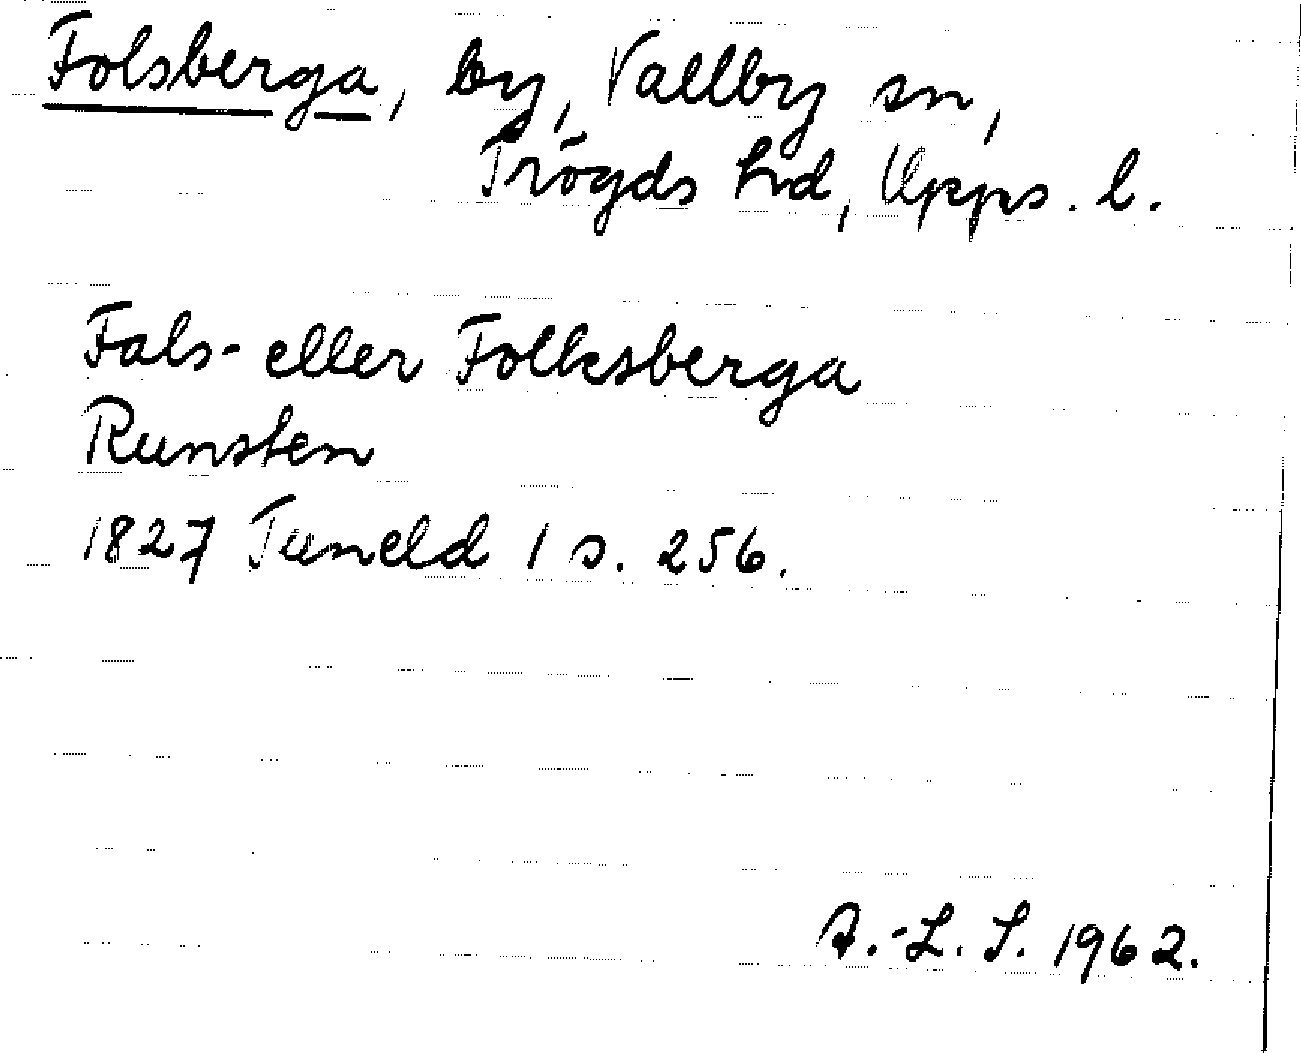 Folsberga, by, Vallby sn,
Trögds hd, Upps. l.
Fals- eller Folksberga
Runsten
1827 Tuneld 1 s. 256.
A.-L. S. 1962.